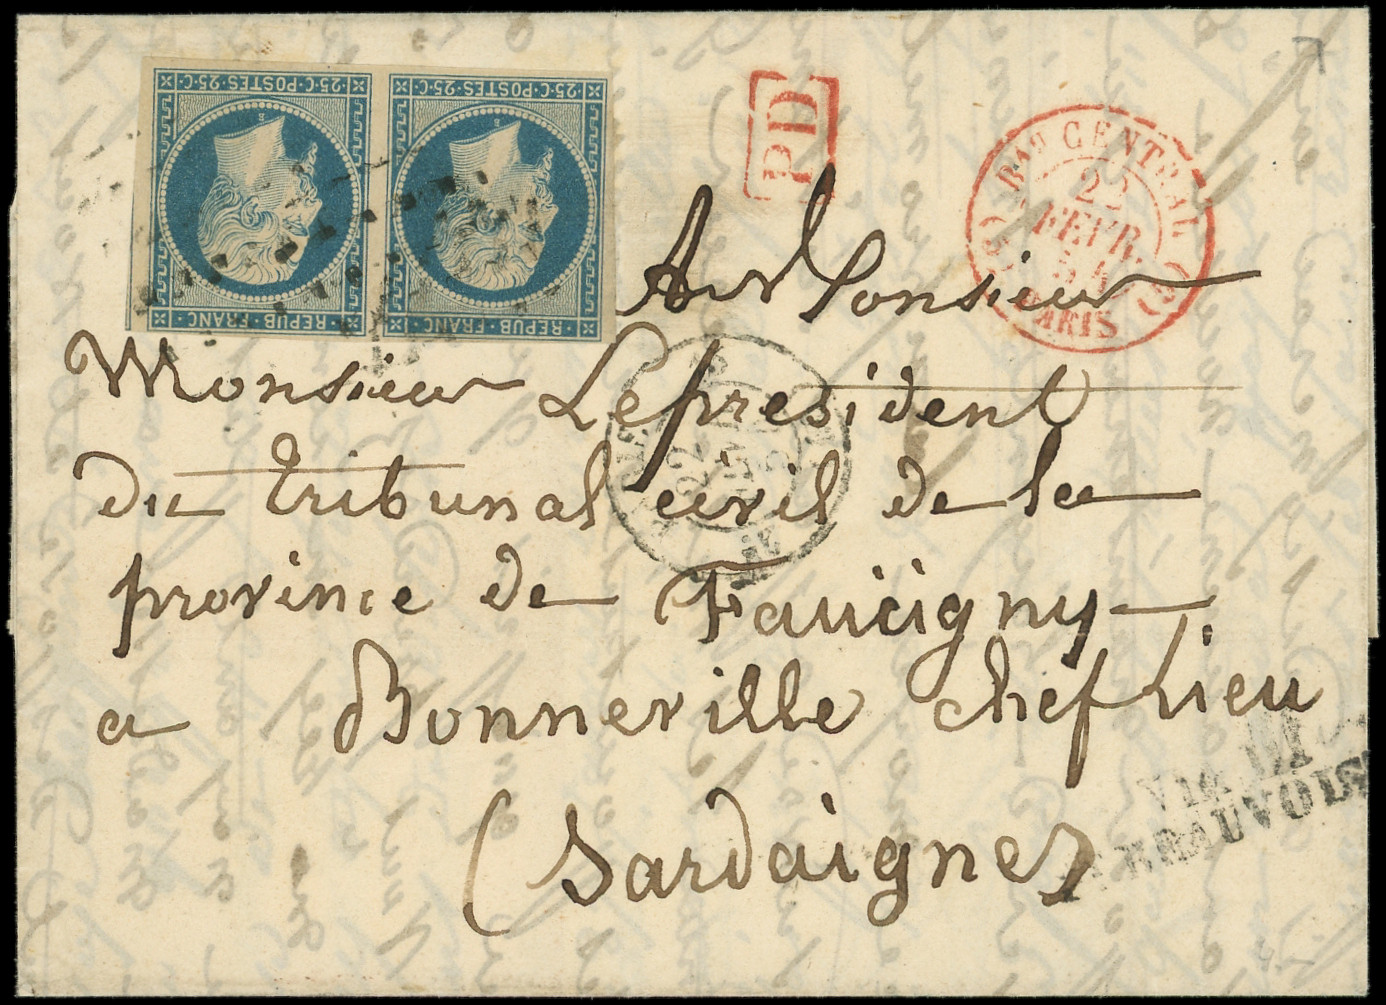 25·C·POSTES·25·C
REPUB·FRANC·
25·C·POSTES·25·C
REPUB·FRANC·
PD
Bau CENTRAL
22
FEVR.
54
PARIS
A Monsieur
Monsieur Le président
du Tribunal civil de la
province de Faucigny
a Bonneville chef Lieu
(Sardaigne)
22
Via di
Pt BEAUVOISIN